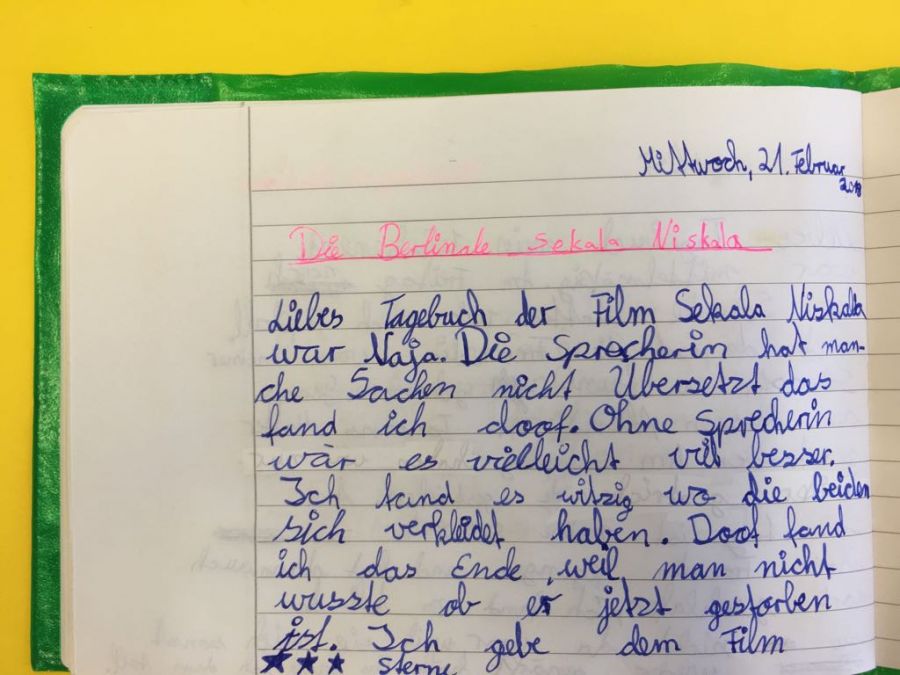 Mittwoch, 21. Februar
2018
Die Berlinale Sekala Niskala
Liebes Tagebuch der Film Sekala Niskala
war Naja. Die Sprecherin hat man-
che Sachen nicht Übersetzt das
fand ich doof. Ohne Sprecherin
wär es vielleicht viel besser.
Ich fand es witzig wo die beiden
sich verkleidet haben. Doof fand
ich das Ende, weil man nicht
wusste ob er jetzt gestorben
ist. Ich gebe dem Film
★★★ Sterne